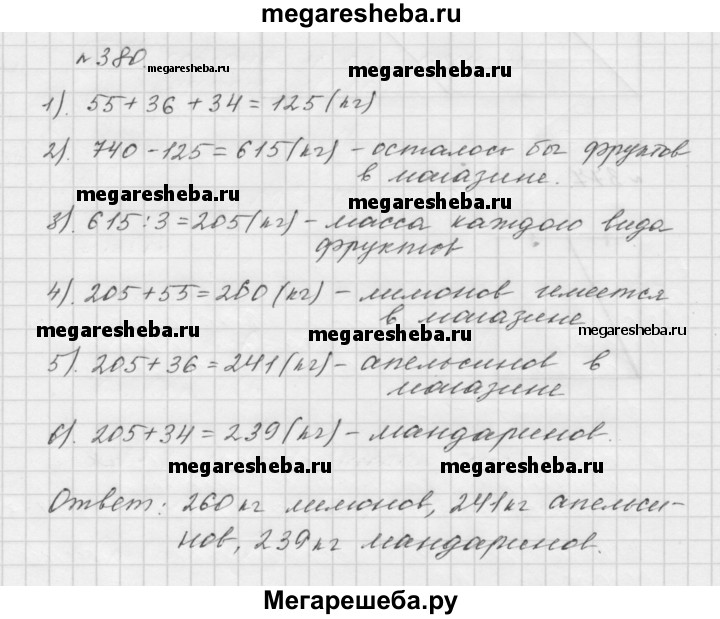 megaresheba.ru
№380.
megaresheba.ru
megaresheba.ru
1). 55+36+34=125(кг)
2). 740-125=615(кг) - осталось бы фруктов
в магазине.
megaresheba.ru
megaresheba.ru
3). 615:3=205(кг) - масса каждого вида
фруктов
4). 205+55=260(кг) - лимонов имеется
в магазине
megaresheba.ru
megaresheba.ru
megaresheba.ru
5). 205+36=241(кг) - апельсинов в
магазине
6). 205+34=239(кг) - мандаринов.
megaresheba.ru
megaresheba.ru
Ответ: 260кг лимонов, 241кг апельси-
нов, 239кг мандаринов.
Мегарешеба.ру